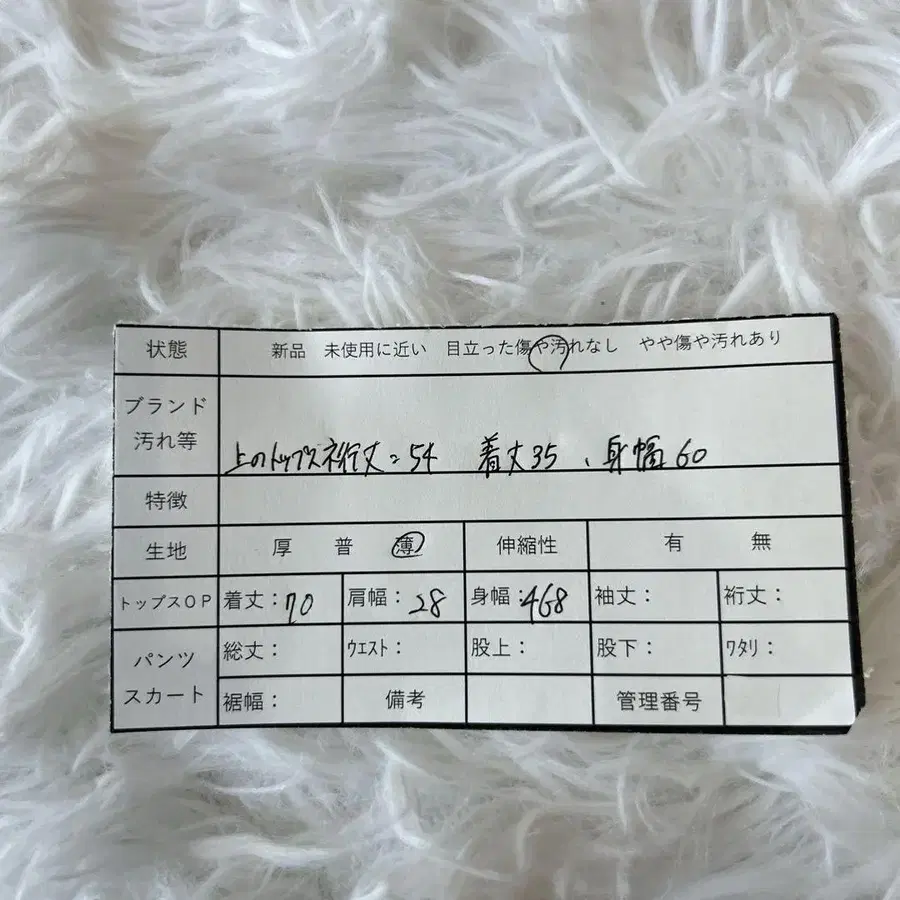 状態 新品 未使用に近い 目立った傷や汚れなし やや傷や汚れあり
ブランド
汚れ等 上のトップス裄丈：54 着丈35、身幅60
特徴
生地 厚 普 薄 伸縮性 有 無
トップスOP 着丈：70 肩幅：28 身幅：468 袖丈： 裄丈：
パンツ
スカート
総丈： ウエスト： 股上： 股下： ワタリ：
裾幅： 備考 管理番号